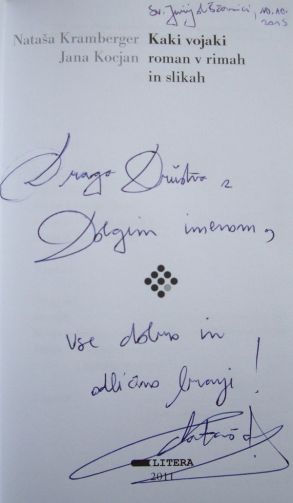 Sv. Jurij ob Ščavnici,
2015
Nataša Kramberger Kaki vojaki
Jana Kocjan roman v rimah
in slikah
Drago Društvo z
Dolgim imenom,
vse dobro in
odlično branji!
Nataša
LITERA
2011